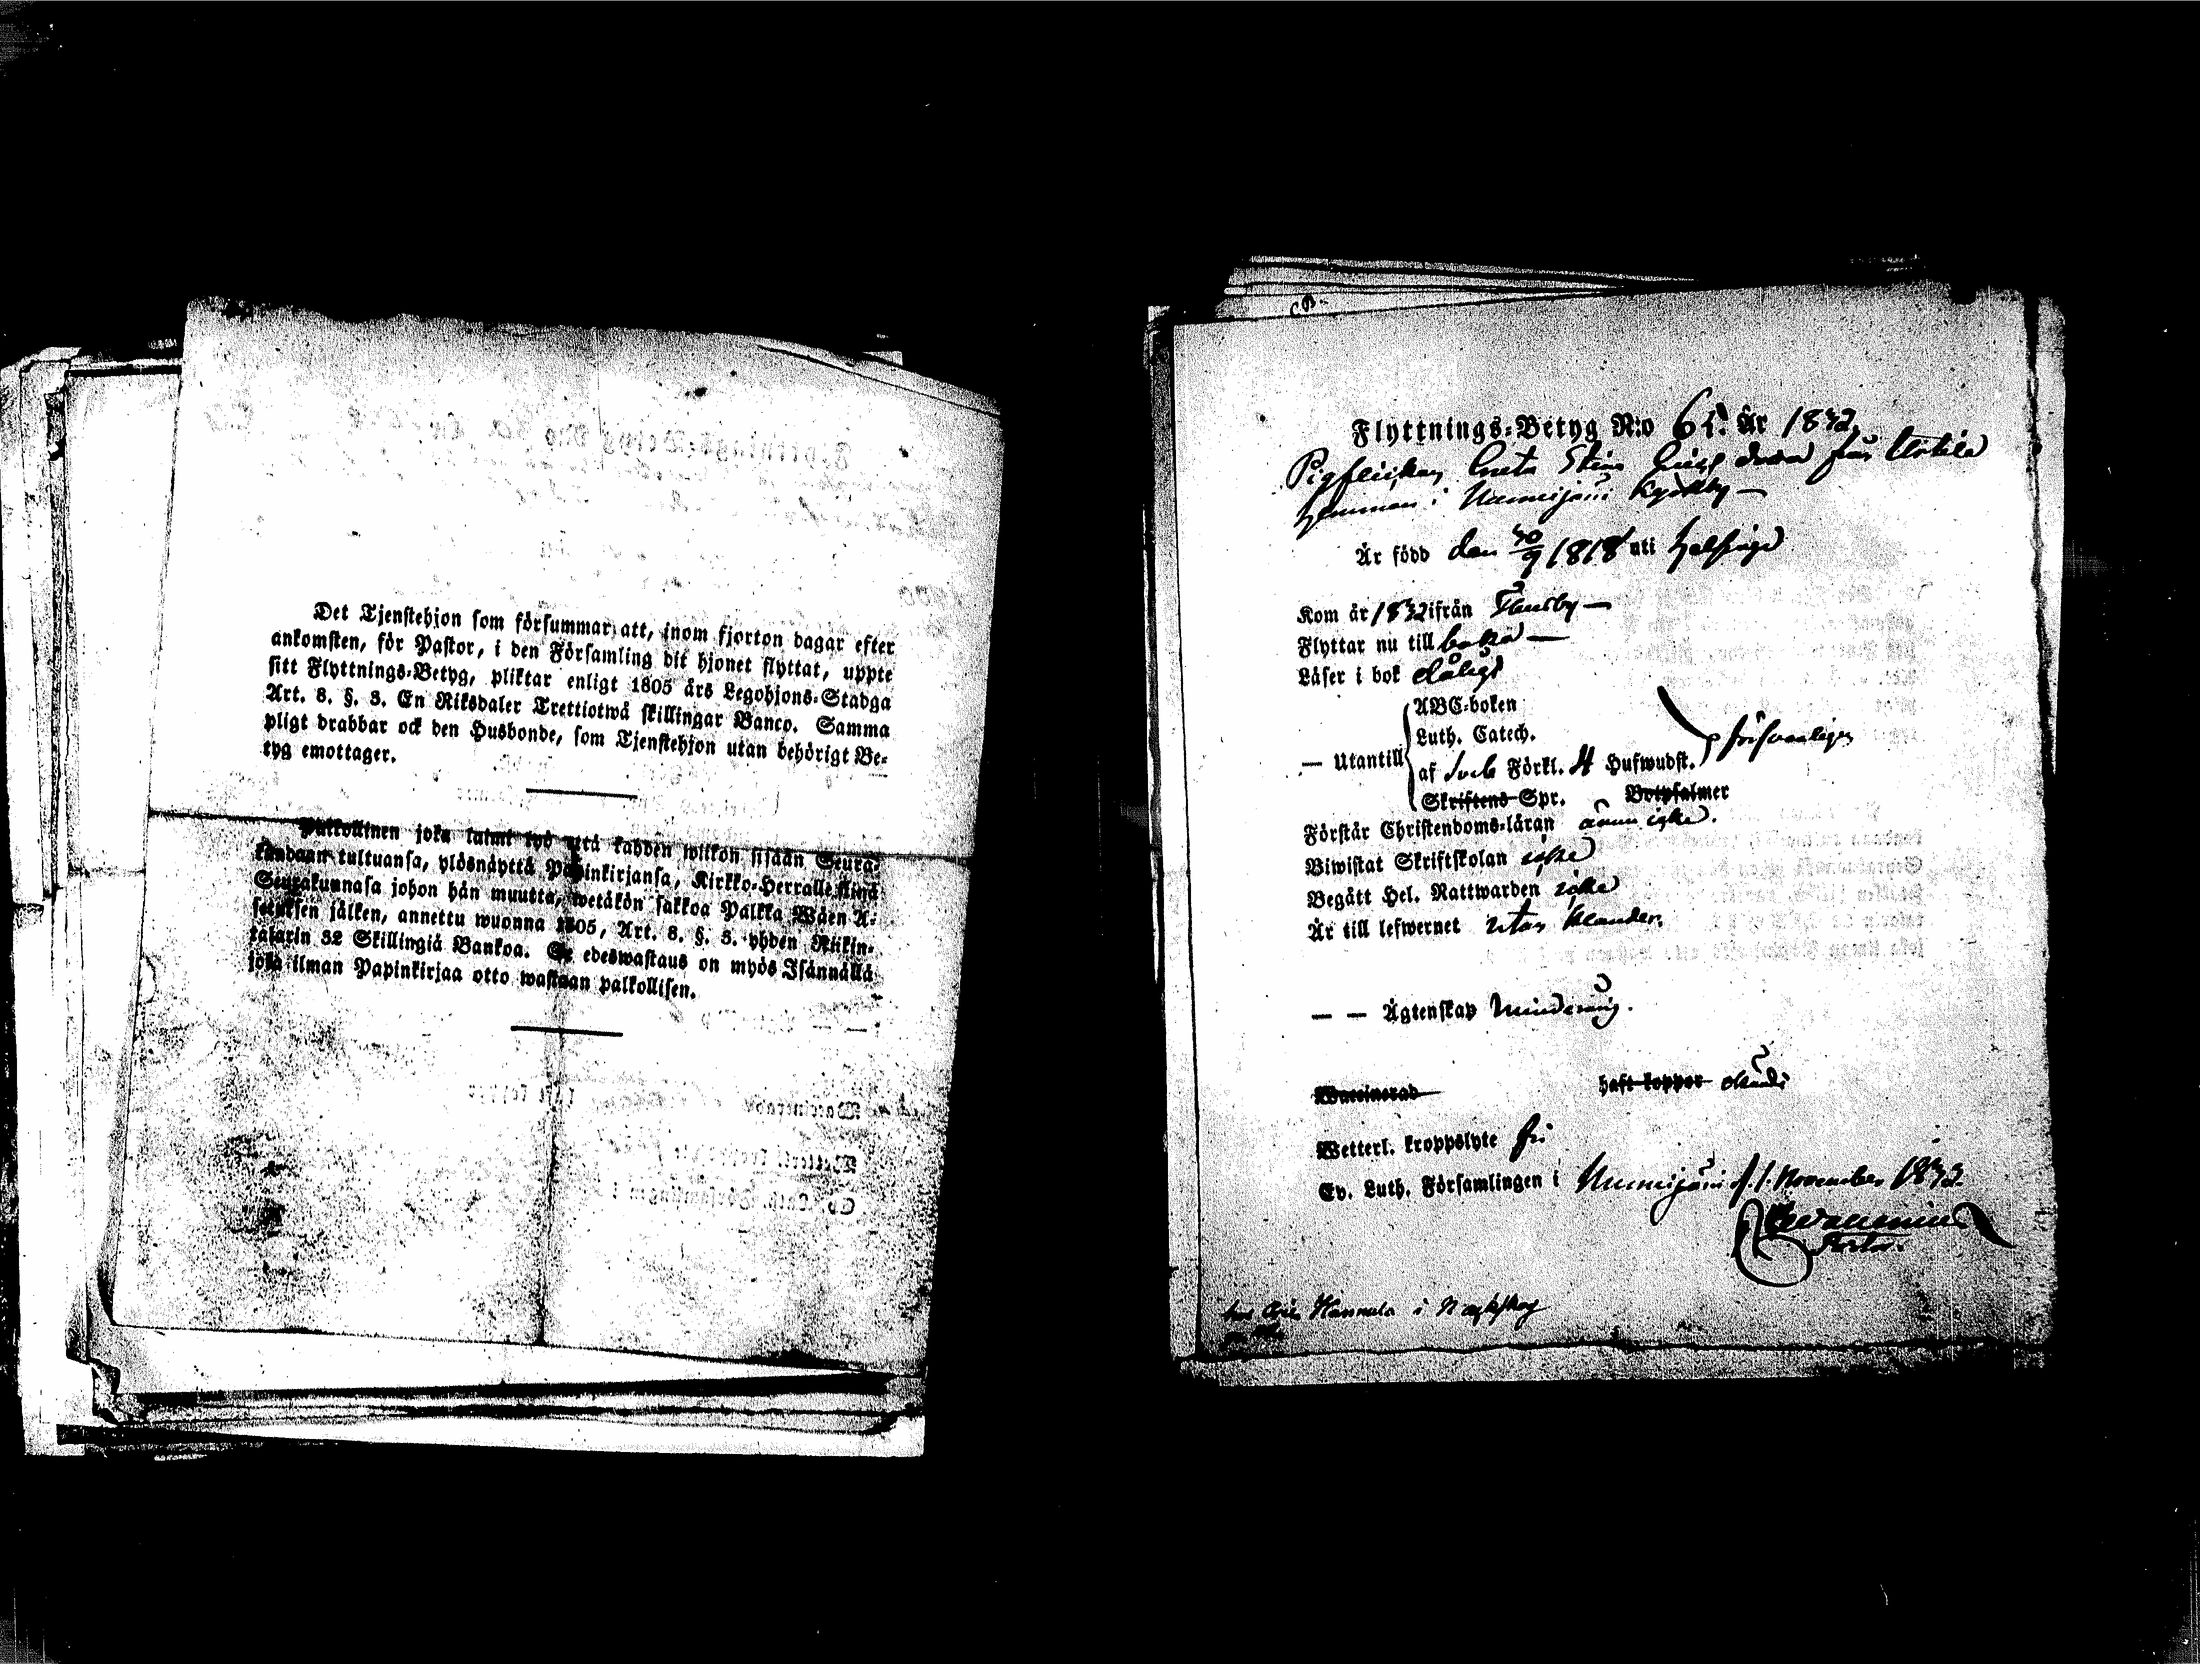 Det Tjenstehjon som försummar att, inom fjorton dagar efter
ankomsten, för Pastor, i den Församling dit hjonet flyttat, uppte
sitt Flyttnings-Betyg, pliktar enligt 1805 års Legohjons-Stadga
Art. 8. §. 3. En Riksdaler Trettiotwå skillingar Banco. Samma
pligt drabbar ock den Husbonde, som Tjenstehjon utan behörigt Be-
tyg emottager.
Palkollinen joka laimi lyö että kahden wiikon sisään Seura-
kundaan tultuansa, ylösnäyttä Papinkirjansa, Kirkko-Herralle siinä
Seurakunnasa johon hän muutta, wetäkön sakkoa Palkka Wäen A-
setuksen jälken, annettu wuonna 1805, Art. 8. §. 3. yhden Riikin-
talarin 32 Skillingiä Bankoa. Se edeswastaus on myös Isännällä
joka ilman Papinkirjaa otto wastaan palkollisen.
Flyttnings-Betyg N:o 61. År 1832
Pigflickan Greta Stina från
hemman i Nummijärvi
Är född den 30/9 1818 uti Helsinge
Kom år 1832 ifrån Thusby
Flyttar nu till
Läser i bok dåligt
ABC-boken
Luth. Catech.
— Utantill af Förkl. 4 Hufwudst. försvarligen
Skriftens Spr. Botpsalmer
Förstår Christendoms-läran ännu icke.
Biwistat Skriftskolan icke
Begått Hel. Nattwarden icke
Är till lefwernet utan klander.
— — Ägtenskap minderårig.
Waccinerad haft koppor
Wetterl. kroppslyte fri
Ev. Luth. Församlingen i November 1832.
Pastor.
Hannula i